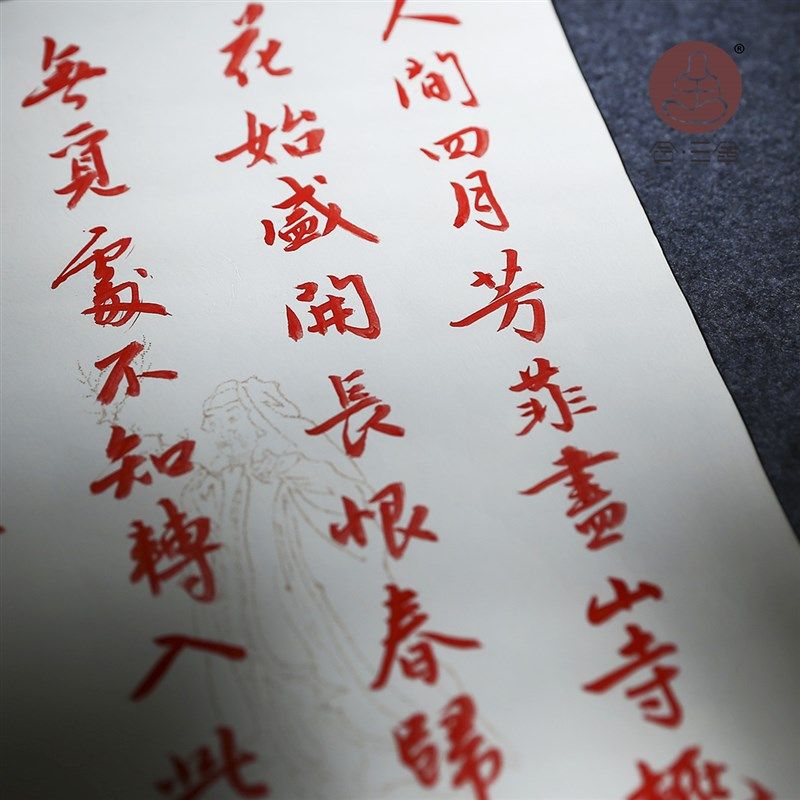 人間四月芳菲盡山寺桃
花始盛開長恨春歸
無覓處不知轉入此
®